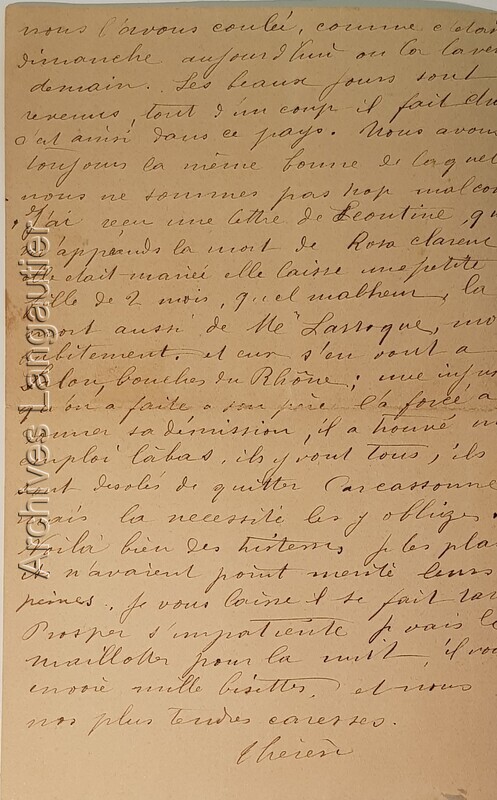 nous l'avons coulée, comme c'était
dimanche aujourd'hui on la lave
demain. Les beaux jours sont
revenus, tout d'un coup il fait du
c'est ainsi dans ce pays. Nous avon
toujours la même bonne de laquel
nous ne sommes pas trop malcon
J'ai reçu une lettre de Léontine, qu
m'apprends la mort de Rosa clarenc
elle était mariée elle laisse une petite
fille de 2 mois, quel malheur, la
mort aussi de Me Larroque, mo
subitement. et eux s'en vont a
bouches du Rhône; une injus
qu'on a faite a son père l'a forcé a
donner sa démission, il a trouvé un
emploi làbas, ils y vont tous, ils
sont desolés de quitter Carcassonne
mais la necessité les y obliges.
Voilà bien des tristesses je les plai
ils n'avaient point merité leurs
peines. je vous laisse il se fait tar
Prosper s'impatiente je vais le
maillotter pour la nuit, il vou
envoie mille bisettes, et nous
nos plus tendres caresses.
Thérèse
Archives Langautier